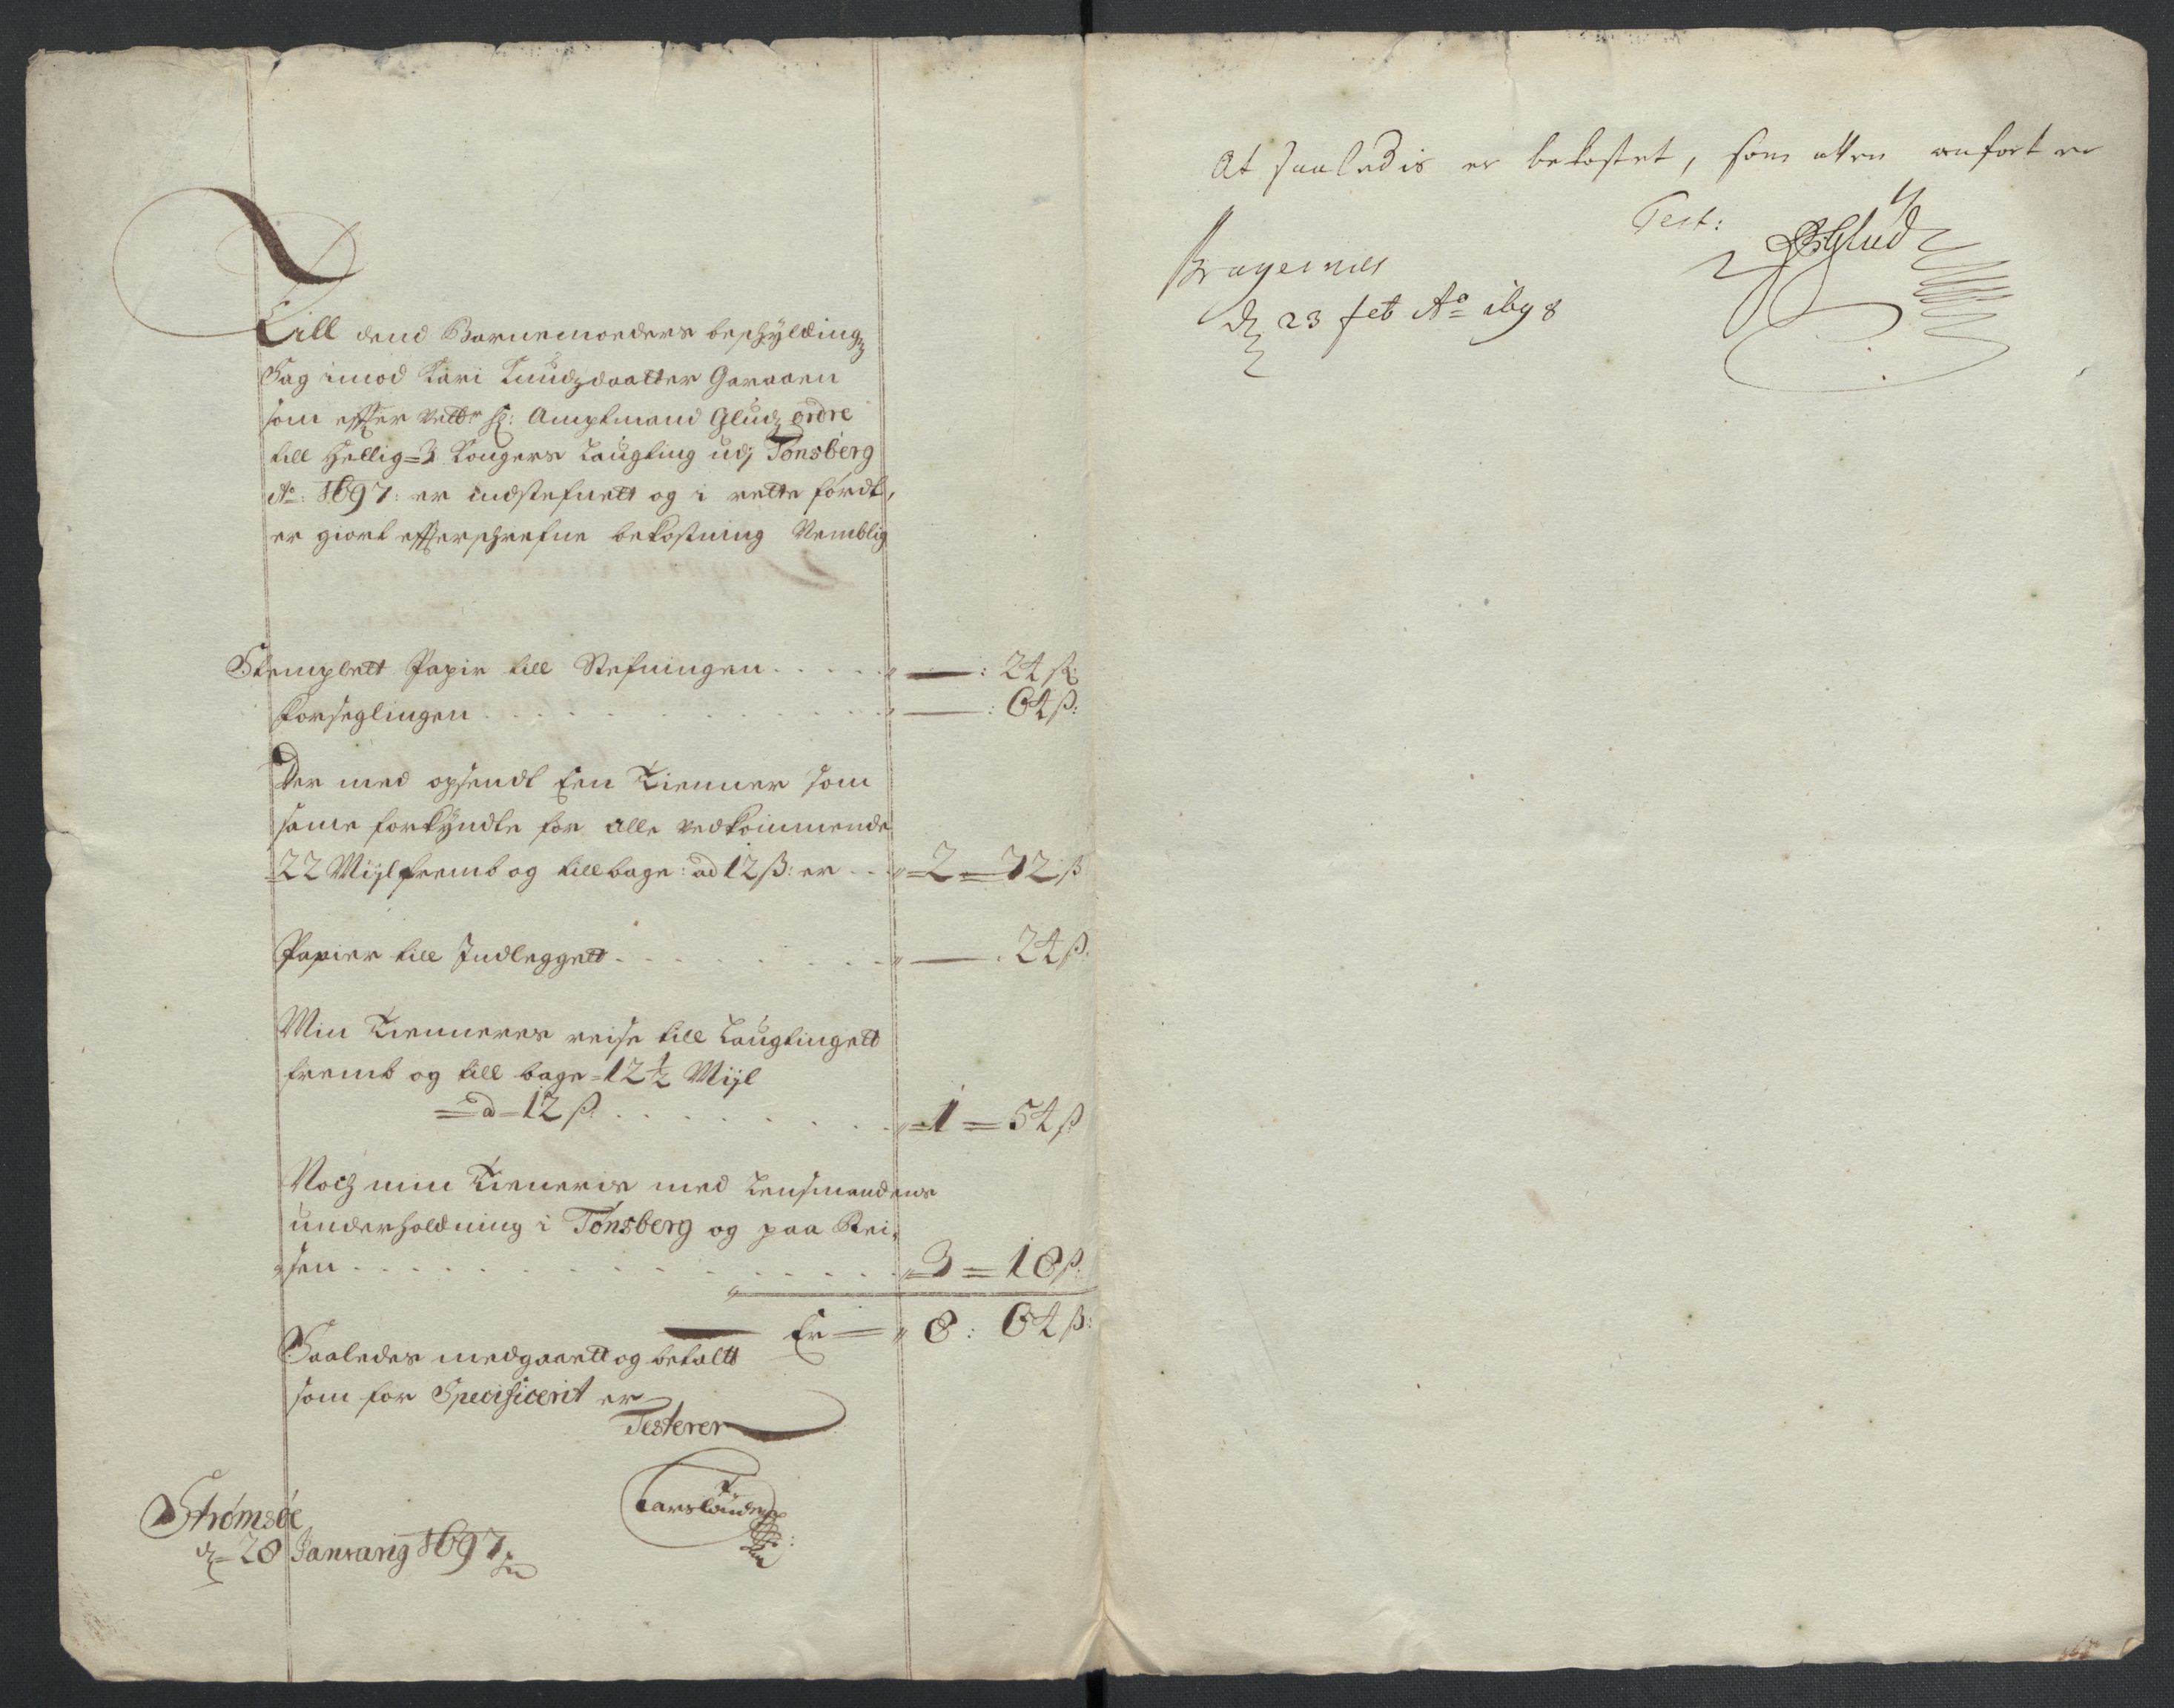 Till dend Barnemorders beschÿlding
Sag imod Kari Knudzdaatter Garaaen
som effter velb: Hr: Amptmand Gludz ordre
till Hellig=3 Kongers Laugting udj Tønsberg
Ao: 1697: er indstefnett og i rette ført,
er giort effterschrefne bekostning Nemblig
Stemplett Papir till Stefningen . . . . . — : 24 ß:
Forseglingen . . . . . — : 64 ß:
Der med opsendt Een Tienner som
same forkÿndte for alle vedkommende
22 Mijl fremb og tillbage: ad 12 ß: er . . . 2 = 72 ß
Papier till Indleggett . . . . . — : 24 ß.
Min Tienneres reise till Laugtingett
fremb og till bage = 12 1/2 Mijl
= ad = 12 ß. . . . . . = 1 = 54 ß
Noch min Tieneris med Lensmandens
underholdning i Tønsberg og paa Rei=
=sen . . . . . = 3 = 18 ß.
Er = 8 : 64 ß:
Saaledes medgaaett og betaltt
som for Specificerit er
Testerer
Strømsøe
d: 28 Januarig 1697
At saaledis er bekostet, som atten anført er
Test:
Glud
Bragernes
d: 23 feb Ao 1698